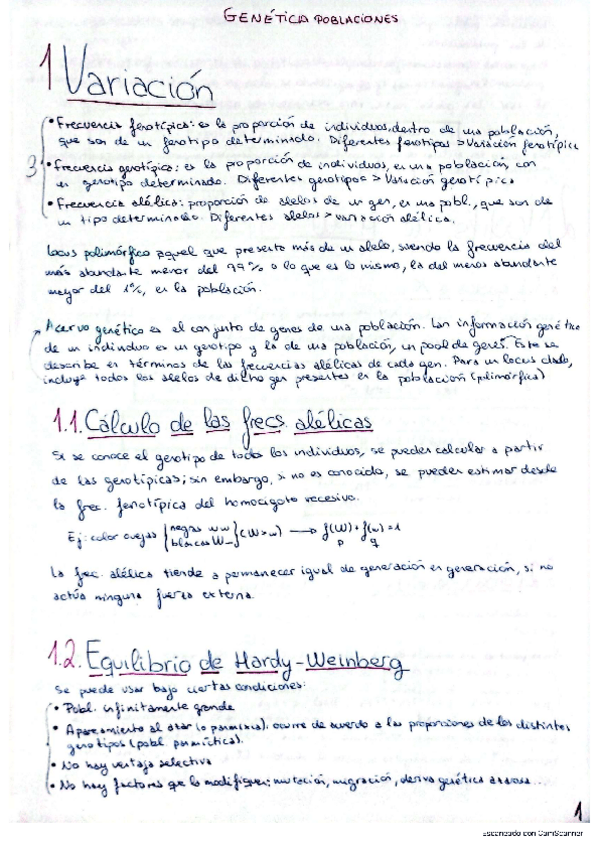 GENÉTICA POBLACIONES
1 Variación
• Frecuencia fenotípica: es la proporción de individuos, dentro de una población,
que son de un fenotipo determinado. Diferentes fenotipos > Variación fenotípica
3 • Frecuencia genotípica: es la proporción de individuos, en una población, con
un genotipo determinado. Diferentes genotipos > Variación genotípica
• Frecuencia alélica: proporción de alelos de un gen, en una pobl., que son de
un tipo determinado. Diferentes alelos > variación alélica.
Locus polimórfico aquel que presenta más de un alelo, siendo la frecuencia del
más abundante menor del 99% o lo que es lo mismo, la del menos abundante
mayor del 1%, en la población.
Acervo genético es el conjunto de genes de una población. Lan información genética
de un individuo es un genotipo y la de una población, un pool de genes. Este se
describe en términos de las frecuencias alélicas de cada gen. Para un locus dado,
incluye todos los alelos de dicho gen presentes en la población (polimórfica)
1.1. Cálculo de las frecs. alélicas
Si se conoce el genotipo de todos los individuos, se pueden calcular a partir
de las genotípicas; sin embargo, si no es conocido, se pueden estimar desde
la frec. fenotípica del homocigoto recesivo.
Ej: color ovejas { negras ww } (W>w) → f(W) + f(w) = 1
blancas W– p q
La frec. alélica tiende a permanecer igual de generación en generación, si no
actúa ninguna fuerza externa.
1.2. Equilibrio de Hardy-Weinberg
Se puede usar bajo ciertas condiciones:
• Pobl. infinitamente grande
• Apareamiento al azar (o panmixia): ocurre de acuerdo a las proporciones de los distintos
genotipos (pobl. panmíctica).
• No hay ventaja selectiva
• No hay factores que la modifiquen: mutación, migración, deriva genética
1
Escaneado con CamScanner